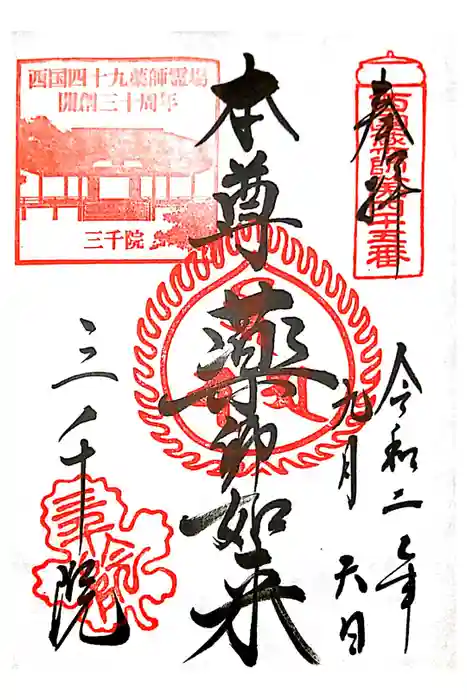 奉拝
西国薬師第四十五番
令和二年
九月
日
本尊 薬師如来
西国四十九薬師霊場
開創三十周年
三千院
三千院